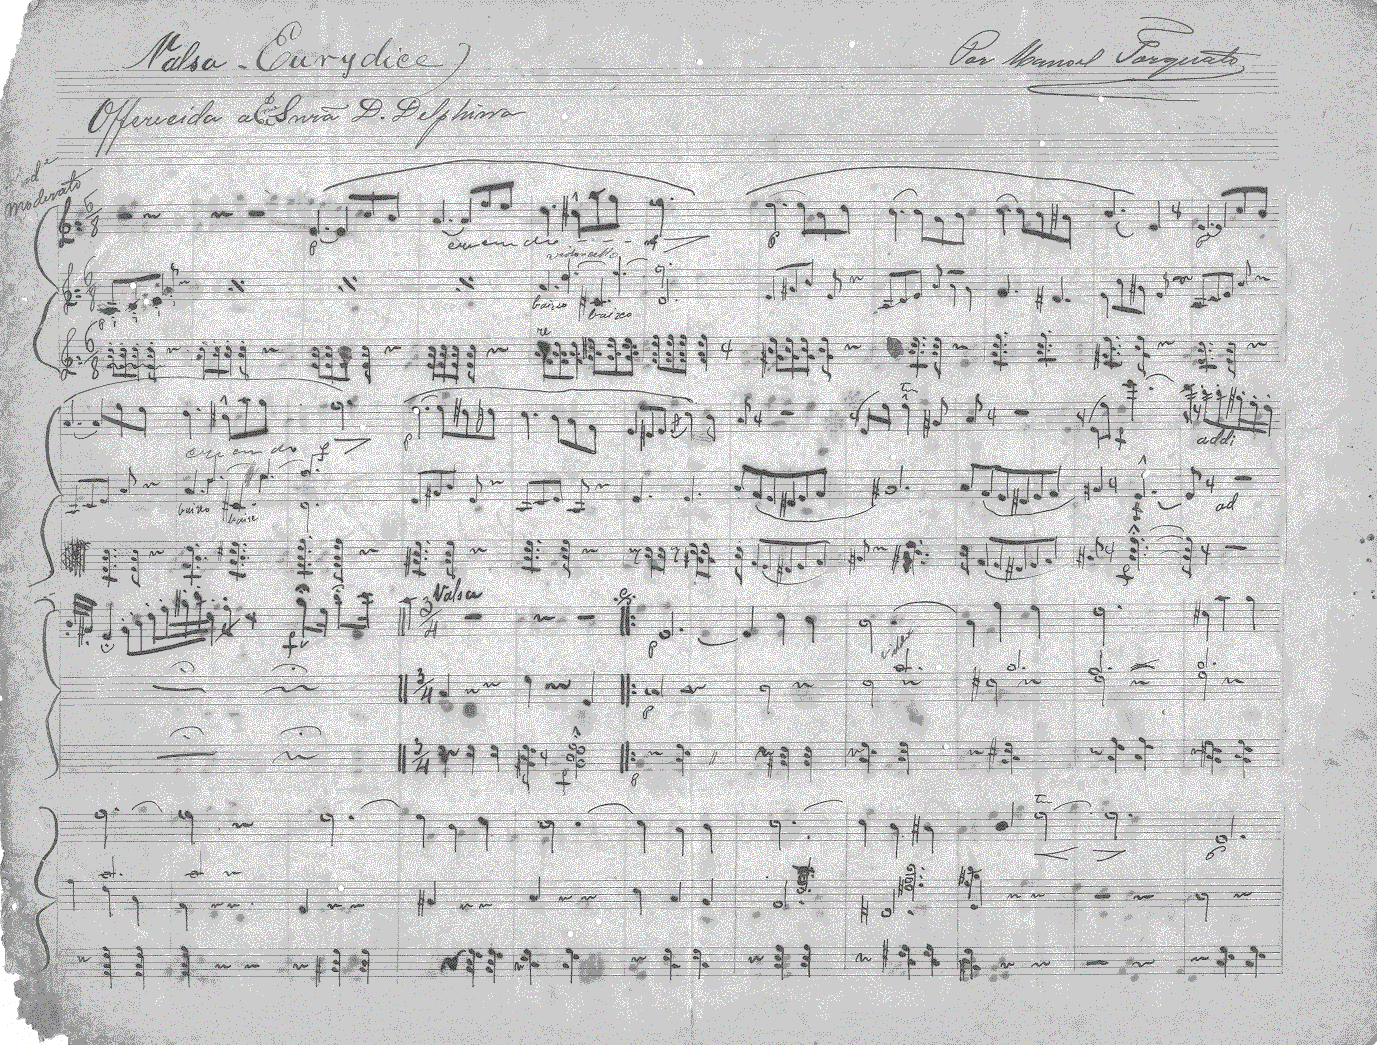 Valsa - Eurydice
Por Manoel Torquato
Offerecida a Exma Snrã D. Delphina
And.e
moderato
6/8
p
crescendo - - - - f
p
p
6/8
violoncello
baixo
baixo
6/8
re
crescendo f
p
tr
addi
baixo
baixo
ad
f
Valsa
3/4
p
f
3/4
p
3/4
f
p
tr